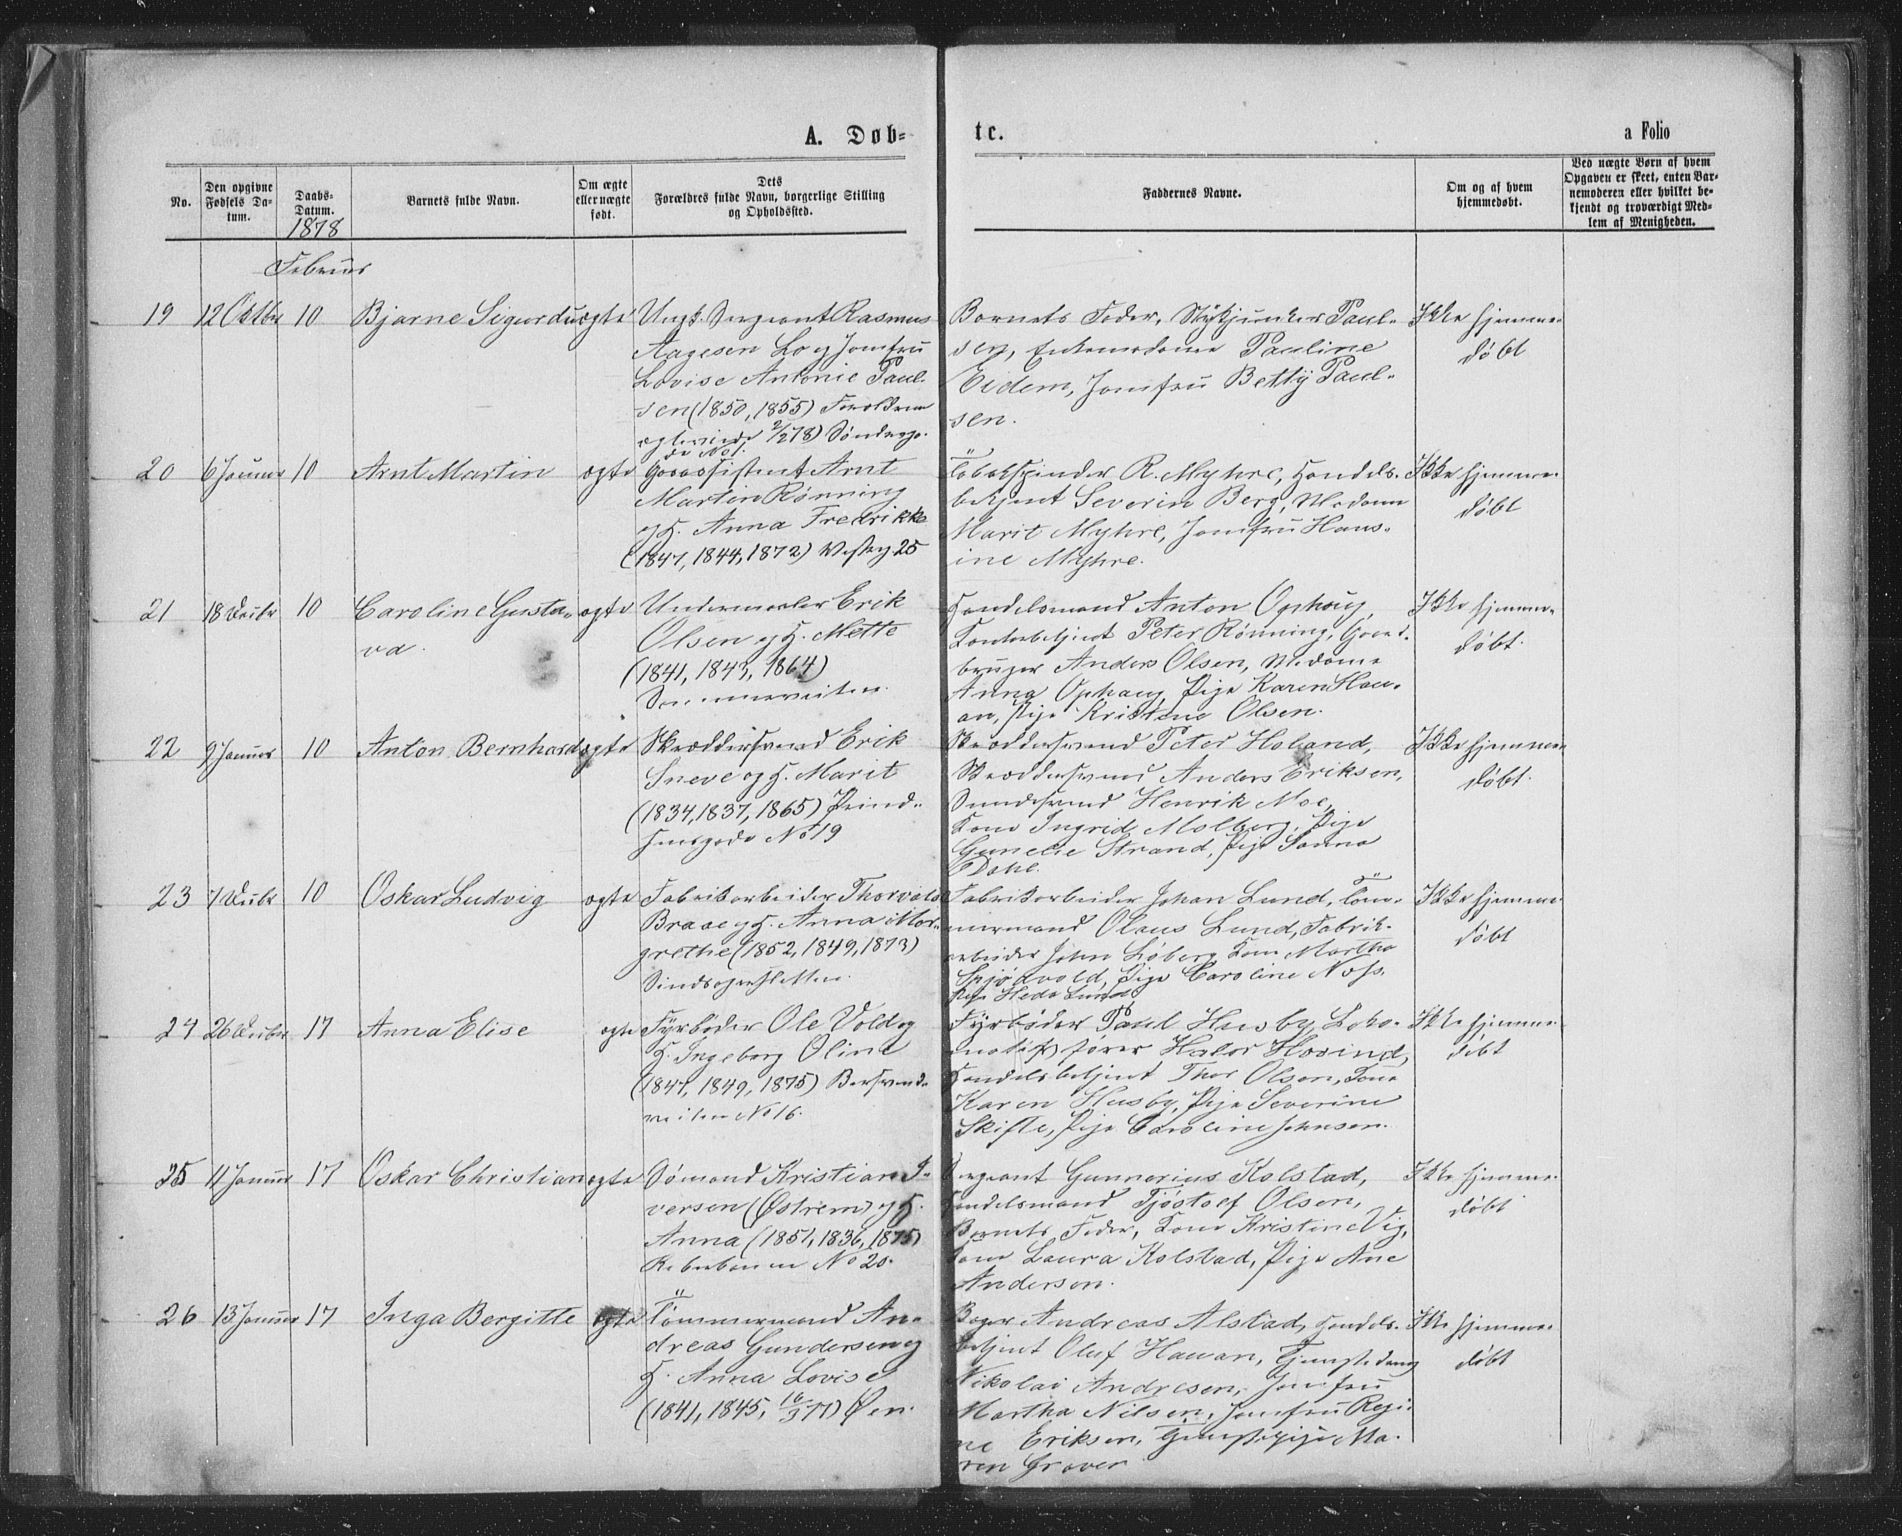 A. Døb=
te.
a Folio
No.
Den opgivne
Fødsels Da-
tum.
Daabs-
Datum.
1878
Barnets fulde Navn.
Om ægte
eller uægte
født.
Dets
Forældres fulde Navn, borgerlige Stilling
og Opholdssted.
Faddernes Navne.
Om og af hvem
hjemmedøbt.
Ved uægte Børn af hvem
Opgaven er skeet, enten Bar-
nemoderen eller hvilket be-
kjendt og troværdigt Med-
lem af Menigheden.
Februar
19 12 Octbr 10 Bjarne Sigurd ægte
Ungk. Sergeant Rasmus
Aagesen Lo og Jomfru
Lovise Antonie Paul-
sen (1850, 1855) Forældrene
2/2 78)
No 1.
Barnets Fader, Stykjunker Paul-
sen, Pauline
Eidem, Jomfru Betty Paul-
sen.
Ikke hjemme-
døbt
20 6 Januar 10 Arnt Martin ægte
Arnt
Martin Rønning
og H. Anna Fredrikke
(1847, 1844, 1872) 25
Tobakspinder R. Myhre, Handels-
betjent Severin Berg, Madame
Marit Myhre, Jomfru Hans-
ine Myhre.
Ikke hjemme-
døbt
21 18 Decbr 10 Caroline Gusta-
va.
ægte
Erik
Olsen og H. Mette
(1841, 1843, 1864)
Handelsmand Anton Ophaug,
Peter Rønning, Gaard-
bruger Anders Olsen, Madame
Anna Ophaug, Pige Karen Hau-
an, Pige Kristine Olsen.
Ikke hjemme-
døbt.
22 9 Januar 10 Anton Bernhard ægte
Skræddersvend Erik
Sneve og H. Marit
(1834, 1837, 1865) Prind-
sensgade No 19
Skræddersvend Peter Holand,
Skræddersvend Anders Eriksen,
Henrik Moe,
Kone Ingrid Molberg, Pige
Gunelie Strand, Pige Hanna
Dahl.
Ikke hjemme-
døbt.
23 7 Decbr 10 Oskar Ludvig ægte
Fabrikarbeider Thorvald
Braae og H. Anna Mar-
grethe (1852, 1849, 1873)
Fabrikarbeider Johan Lund, Tøm-
mermand Olaus Lund, Fabrik-
arbeider John Løberg, Kone Martha
Spjødvold, Pige Caroline Næss,
Pige Heda Lund
Ikke hjemme
døbt
24 26 Decbr 17 Anna Elise ægte
Fyrbøder Ole Vold og
H. Ingeborg Oline
(1847, 1849, 1875) Bersvend-
veiten No 16.
Fyrbøder Paul Husby, Loko-
motivfører Halvor Hovind,
Handelsbetjent Thor Olsen, Kone
Karen Husby, Pige Severine
Skifte, Pige Caroline Johnsen.
Ikke hjemme-
døbt
25 11 Januar 17 Oskar Christian ægte
Sømand Kristian I-
versen (Østrem) og H.
Anna (1851, 1836, 1875)
No 20.
Sergeant Gunnerius Kolstad,
Handelsmand Tjøstolf Olsen,
Barnets Fader, Kone Kristine Vig,
Kone Laura Kolstad, Pige Ane
Andersen.
Ikke hjemme-
døbt
26 13 Januar 17 Inga Bergitte ægte
Tømmermand An-
dreas Gundersen og
H. Anna Lovise
(1841, 1845, 16/3 77) Øen.
Bager Andreas Alstad, Handels-
betjent Oluf Hauan, Tjenestedreng
Nikolai Andresen, Jomfru
Martha Nilsen, Jomfru Regi-
ne Eriksen, Tjenestepige Ma-
ren Graver
Ikke hjemme-
døbt